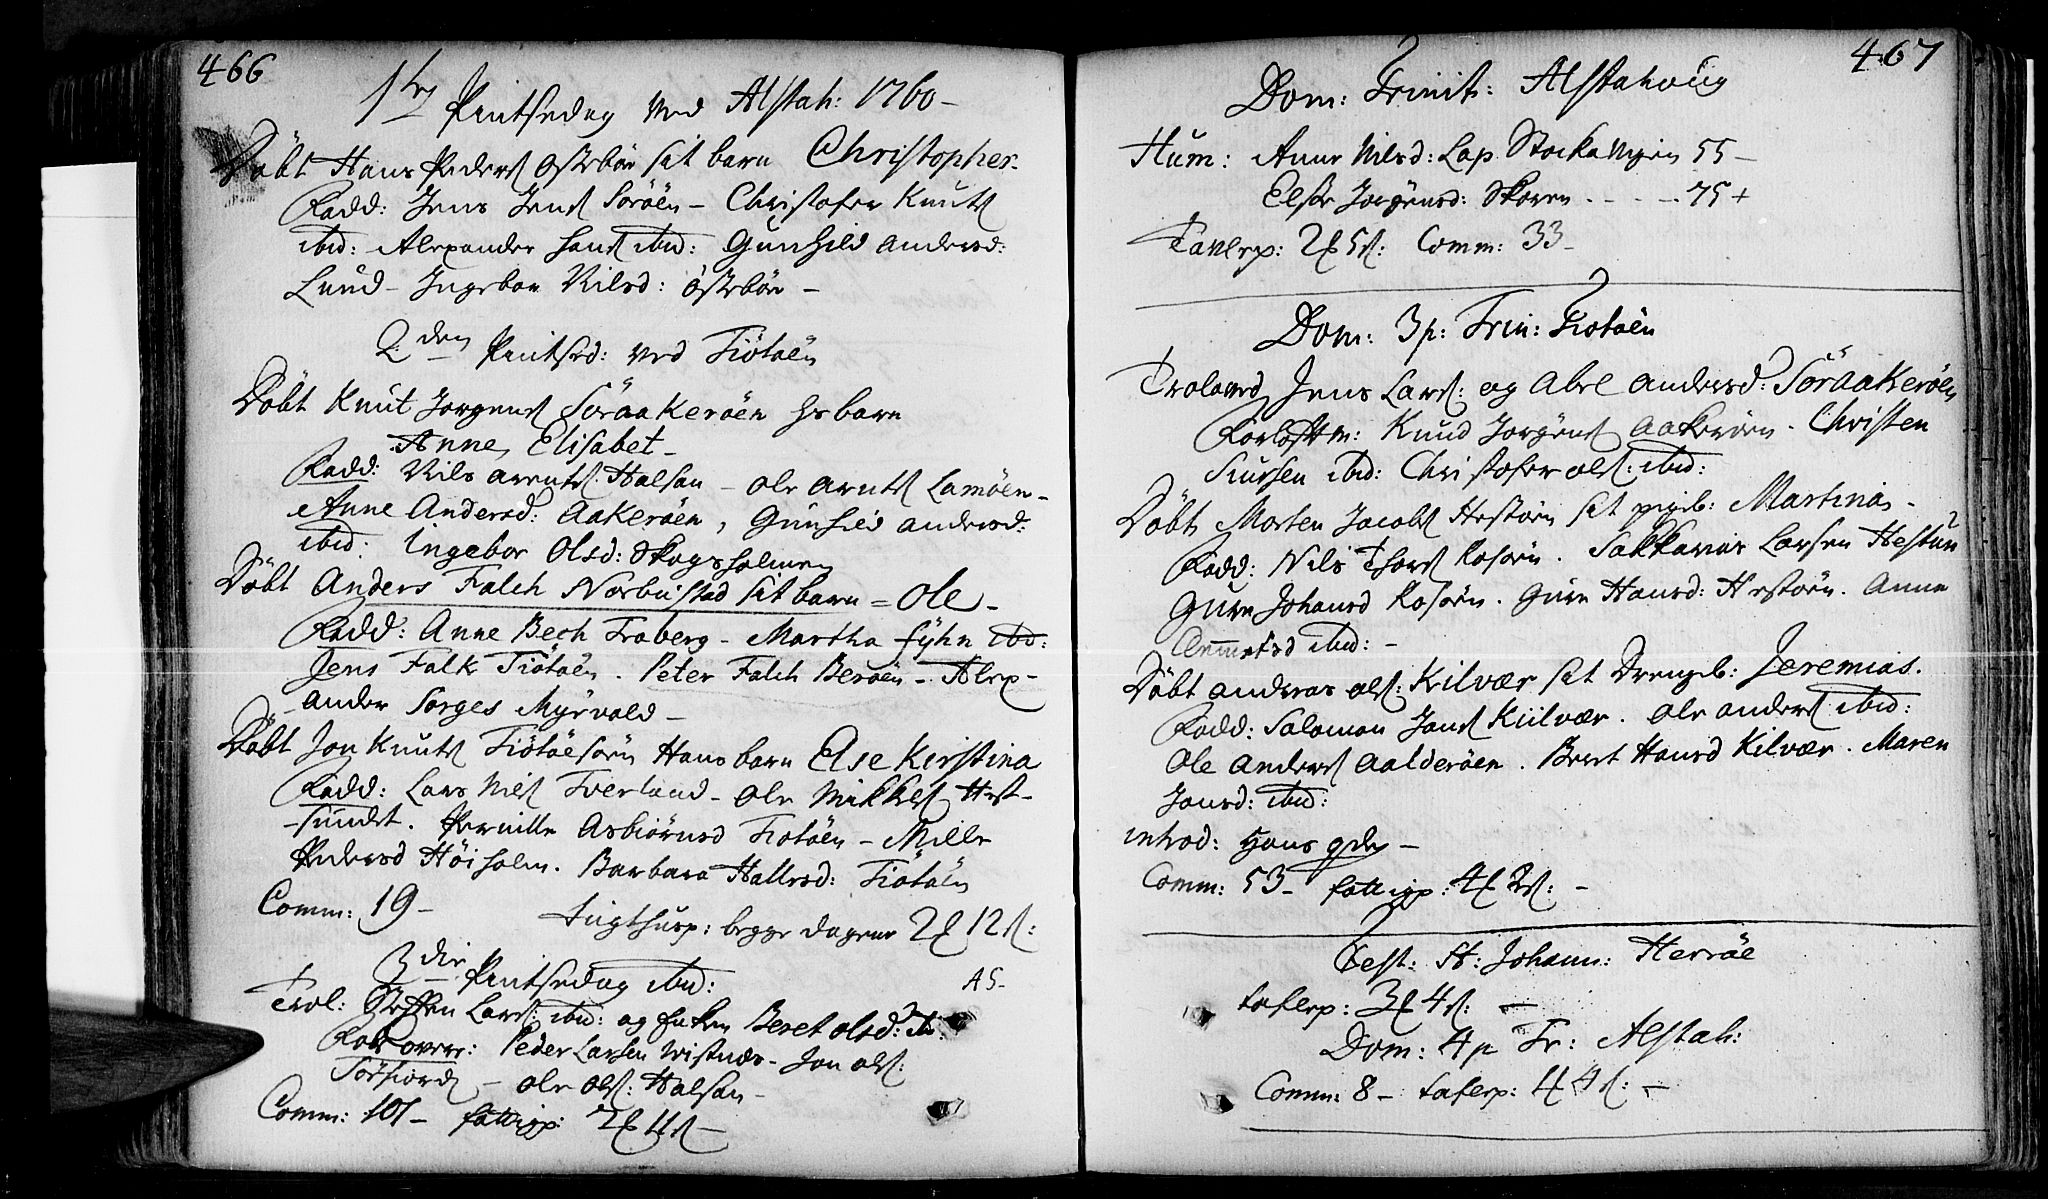 466
1ste Pintsedag ved Alstah: 1760-
Döbt Hans Peders Österböe sit barn Christopher-
Fadd: Jens Jens Söröen - Christofer Knuts
ibid: Alexander Jons ibid: Gunhild Andersd:
Lund - Ingebor Nilsd: Österböe -
2den Pintsed: ved Tiötöen
Döbt Knut Jorgens Söraakeröen hs barn
Anne Elisabet-
Fadd: Nils Arents Halsan - Ole Arnts Lamöen-
Anne Andersd: Aakeröen, Gunhild Andersd:
ibid: Ingebor Olsd: Skogsholmen
Döbt Anders Falch Norbustad sit barn = Ole-
Fadd: Anne Bech Fraberg - Martha Fyhn ibd:
Jens Falk Tiötöen - Peter Falch Beröen - Alex-
ander Sorges Myrvold-
Döbt Jon Knuts Tiötöesöen Hans barn Else Kirstina
Fadd: Lars Nils Tverland - Ole Mikkels Hest-
-sundet. Pernille Asbiörnsd Tiotöen - Mille
Pedersd Höiholm. Barbara Hallesd: Tiötöen
Comm: 19- Tugthusp: begge dagene 2 12s:
3die Pintsedag ibid: A5-
Trol: Steffen Lars: ibid: og Enken Beret Olsd: ib:
Forlovere: Peder Larsen Wistnæs - Jon Ols:
Torfiord - Ole Ols: Halsan-
Comm: 101- fattigp: 2 11s-
467
Dom: Trinit: Alstahoug
Hum: Anne Nilsd: Lap. Stockavigen 55-
Else Jorgensd: Skoven - - - - 75+
Tavlep: 2 5s: Comm: 33-
Dom: 3 p: Trin: Tiotöen
Trolovd Jens Lars: og Abel Andersd: Söraakeröen
Forlofthm: Knud Jorgens Aakeröen. Christen
Siursen ibid: Christofer Ols: ibid:
Döbt Morten Jacobs Hestöen sit pigeb: Martina-
Fadd: Nils Thors Rosöen. Sakkarias Larsen Hestun
Gure Johansd Rosöen. Gure Hansd: Hestöen. Anne
ibid: -
Döbt Andreas Ols: Kilvær sit Drengeb: Jeremias.
Fadd: Salomon Jons Kiilvær. Ole Anders ibid:
Ole Anders Aalderöen. Beret Hansd Kilvær. Maren
Jonsd: ibid:
introd: Hans qde -
Comm: 53- fattigp: 4 2s: -
Fest: St: Johann: Herröe
taflep: 3 4s: -
Dom: 4 p Tr: Alstah:
Comm: 8- taflep: 4 4s: -